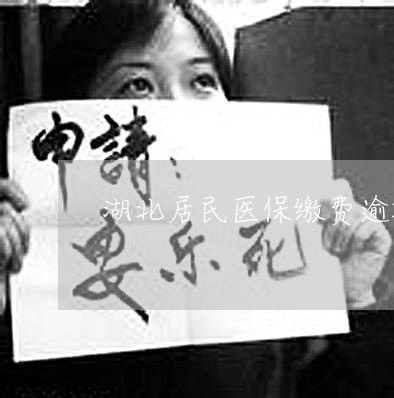 申請：
湖北居民医保缴费逾
安乐死